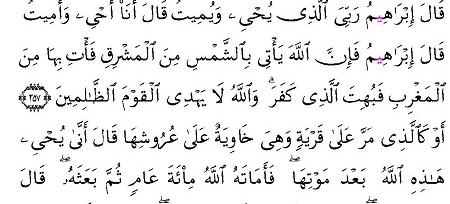 قَالَ إِبۡرَٰهِـۧمُ رَبِّيَ ٱلَّذِي يُحۡيِۦ وَيُمِيتُ قَالَ أَنَا۠ أُحۡيِۦ وَأُمِيتُ
قَالَ إِبۡرَٰهِـۧمُ فَإِنَّ ٱللَّهَ يَأۡتِي بِٱلشَّمۡسِ مِنَ ٱلۡمَشۡرِقِ فَأۡتِ بِهَا مِنَ
ٱلۡمَغۡرِبِ فَبُهِتَ ٱلَّذِي كَفَرَۗ وَٱللَّهُ لَا يَهۡدِي ٱلۡقَوۡمَ ٱلظَّٰلِمِينَ ٢٥٧
أَوۡ كَٱلَّذِي مَرَّ عَلَىٰ قَرۡيَةٖ وَهِيَ خَاوِيَةٌ عَلَىٰ عُرُوشِهَا قَالَ أَنَّىٰ يُحۡيِۦ
هَٰذِهِ ٱللَّهُ بَعۡدَ مَوۡتِهَاۖ فَأَمَاتَهُ ٱللَّهُ مِاْئَةَ عَامٖ ثُمَّ بَعَثَهُۥۖ قَالَ